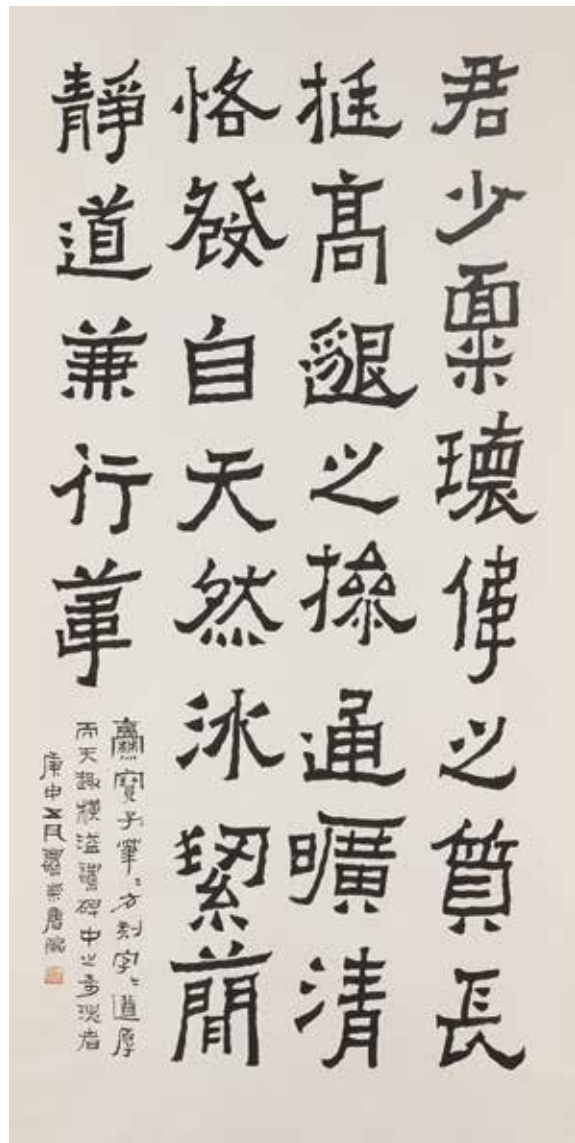 君少稟瓌偉之質長
挺高邈之操通曠清
恪發自天然冰絜簡
靜道兼行葦
爨寶子筆〻方刻字〻遒厚
而天趣橫溢碑中之者
庚申五月